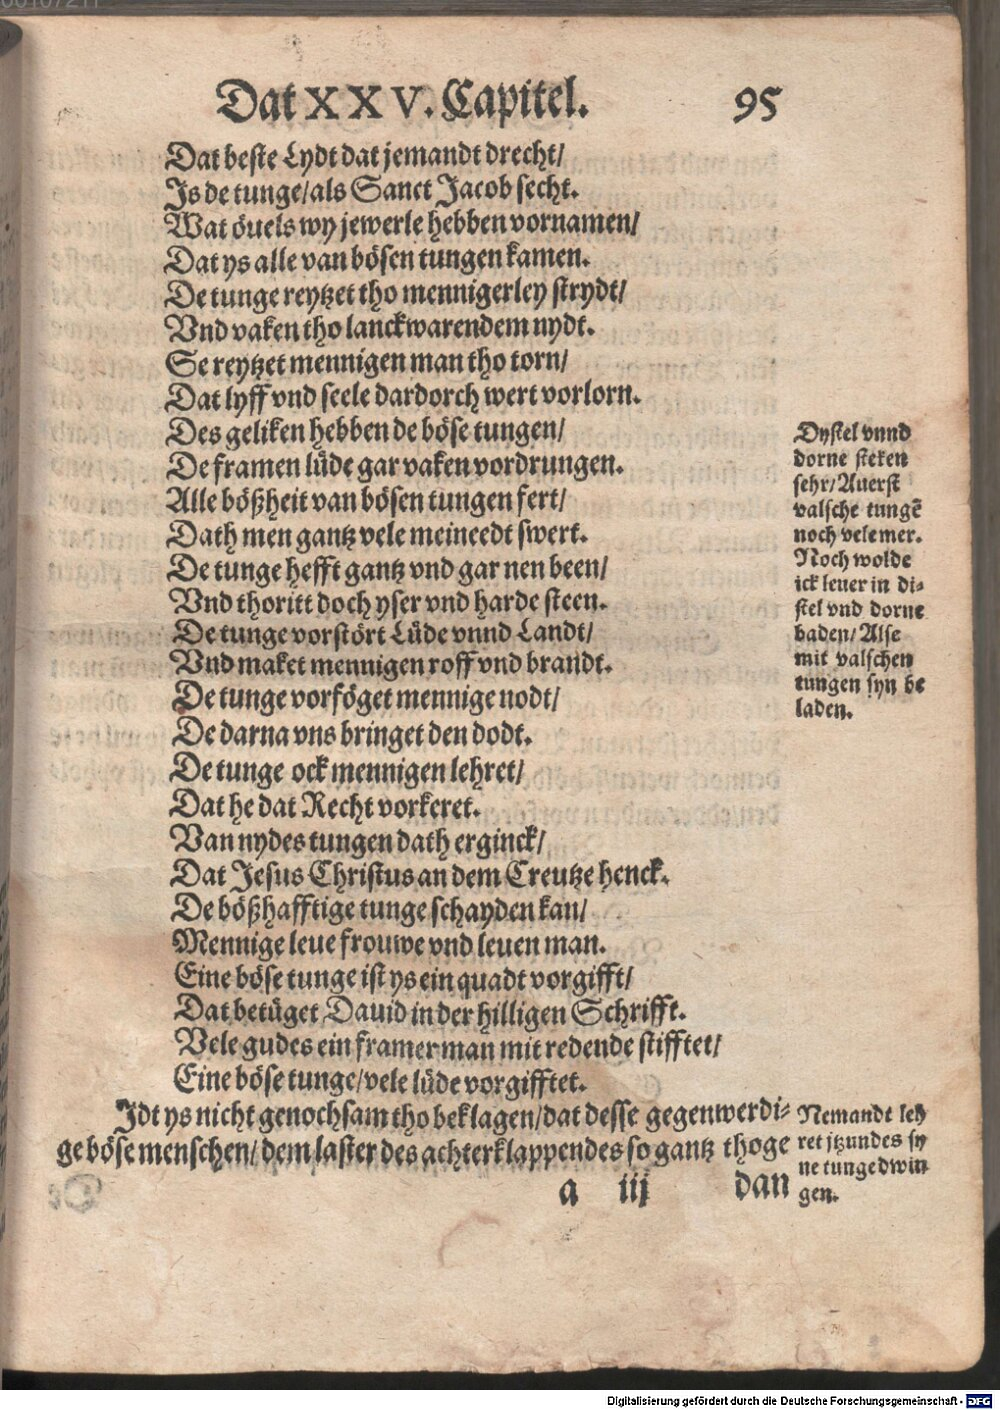 Dat XXV. Capitel. 95
Dat beste Lydt dat jemandt drecht/
Is de tunge/als Sanct Jacob secht.
Wat öuels wy jewerle hebben vornamen/
Dat ys alle van bösen tungen kamen.
De tunge reytzet tho mennigerley strydt/
Vnd vaken tho lanckwarendem nydt.
Se reytzet mennigen man tho torn/
Dat lyff vnd seele dardorch wert vorlorn.
Des geliken hebben de böse tungen/
De framen lüde gar vaken vordrungen.
Alle bößheit van bösen tungen fert/
Dath men gantz vele meineedt swert.
De tunge hefft gantz vnd gar nen been/
Vnd thoritt doch yser vnd harde steen.
De tunge vorstört Lüde vnnd Landt/
Vnd maket mennigen roff vnd brandt.
De tunge vorföget mennige nodt/
De darna vns bringet den dodt.
De tunge ock mennigen lehret/
Dat he dat Recht vorkeret.
Van nydes tungen dath erginck/
Dat Jesus Christus an dem Creutze henck.
De bößhafftige tunge schayden kan/
Mennige leue frouwe vnd leuen man.
Eine böse tunge ist ys ein quadt vorgifft/
Dat betüget Dauid in der hilligen Schrifft.
Vele gudes ein framer man mit redende stifftet/
Eine böse tunge/vele lüde vorgifftet.
Idt ys nicht genochsam tho beklagen/dat desse gegenwerdi-
ge böse menschen/dem laster des achterklappendes so gantz thoge
a iij dan
Dystel vnnd
dorne steken
sehr/Auerst
valsche tungē
noch vele mer.
Noch wolde
ick leuer in di-
stel vnd dorne
baden/Alse
mit valschen
tungen syn be
laden.
Nemandt leh
ret itzundes sy
ne tunge dwin
gen.
Digitalisierung gefördert durch die Deutsche Forschungsgemeinschaft - DFG